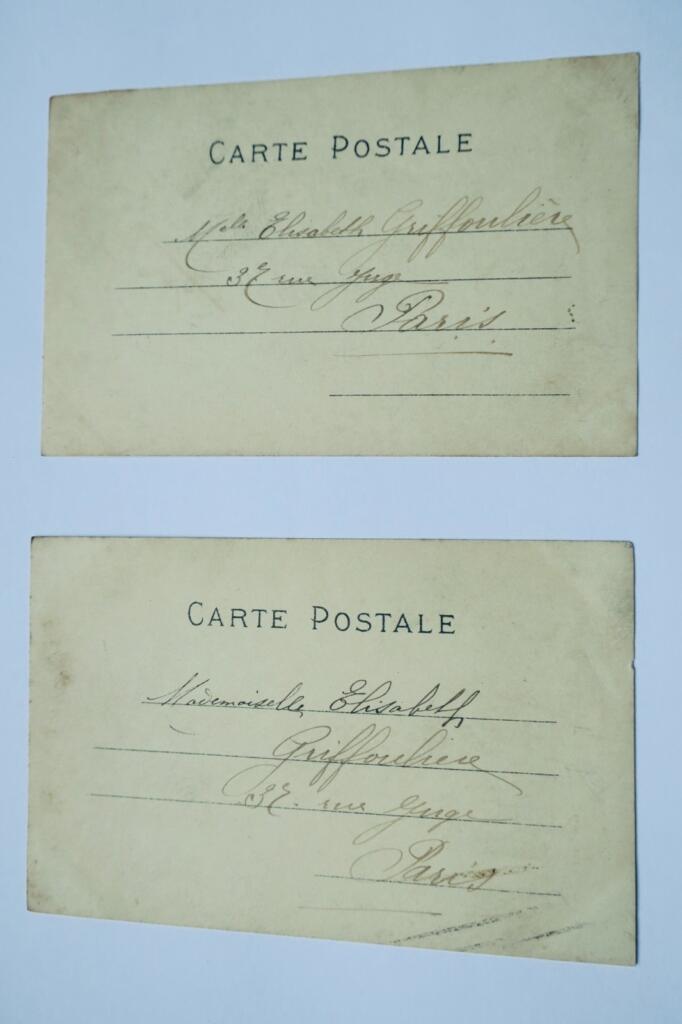 CARTE POSTALE
Melle Elisabeth Griffoulière
37 rue Juge
Paris
CARTE POSTALE
Mademoiselle Elisabeth
Griffoulière
37 rue Juge
Paris